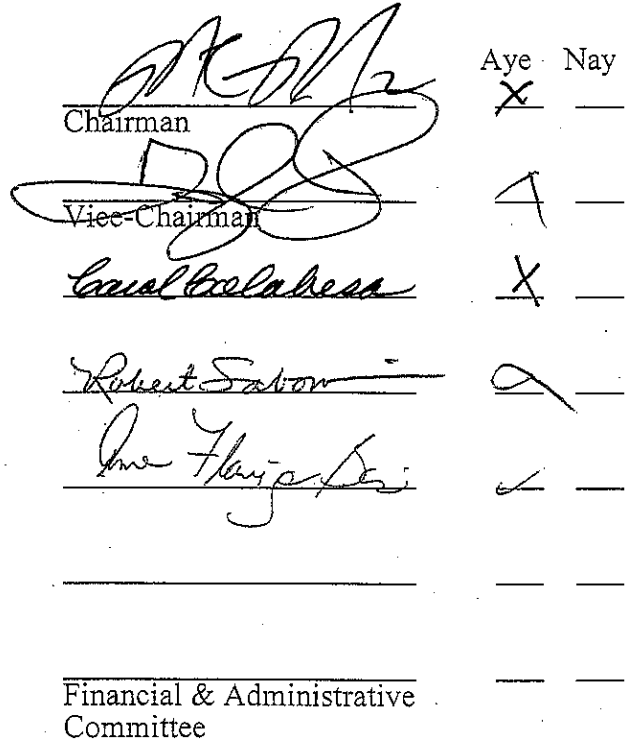 Aye Nay
X
Chairman
Vice-Chairman
Carol Calabresa
X
Robert Sabon
Financial & Administrative
Committee